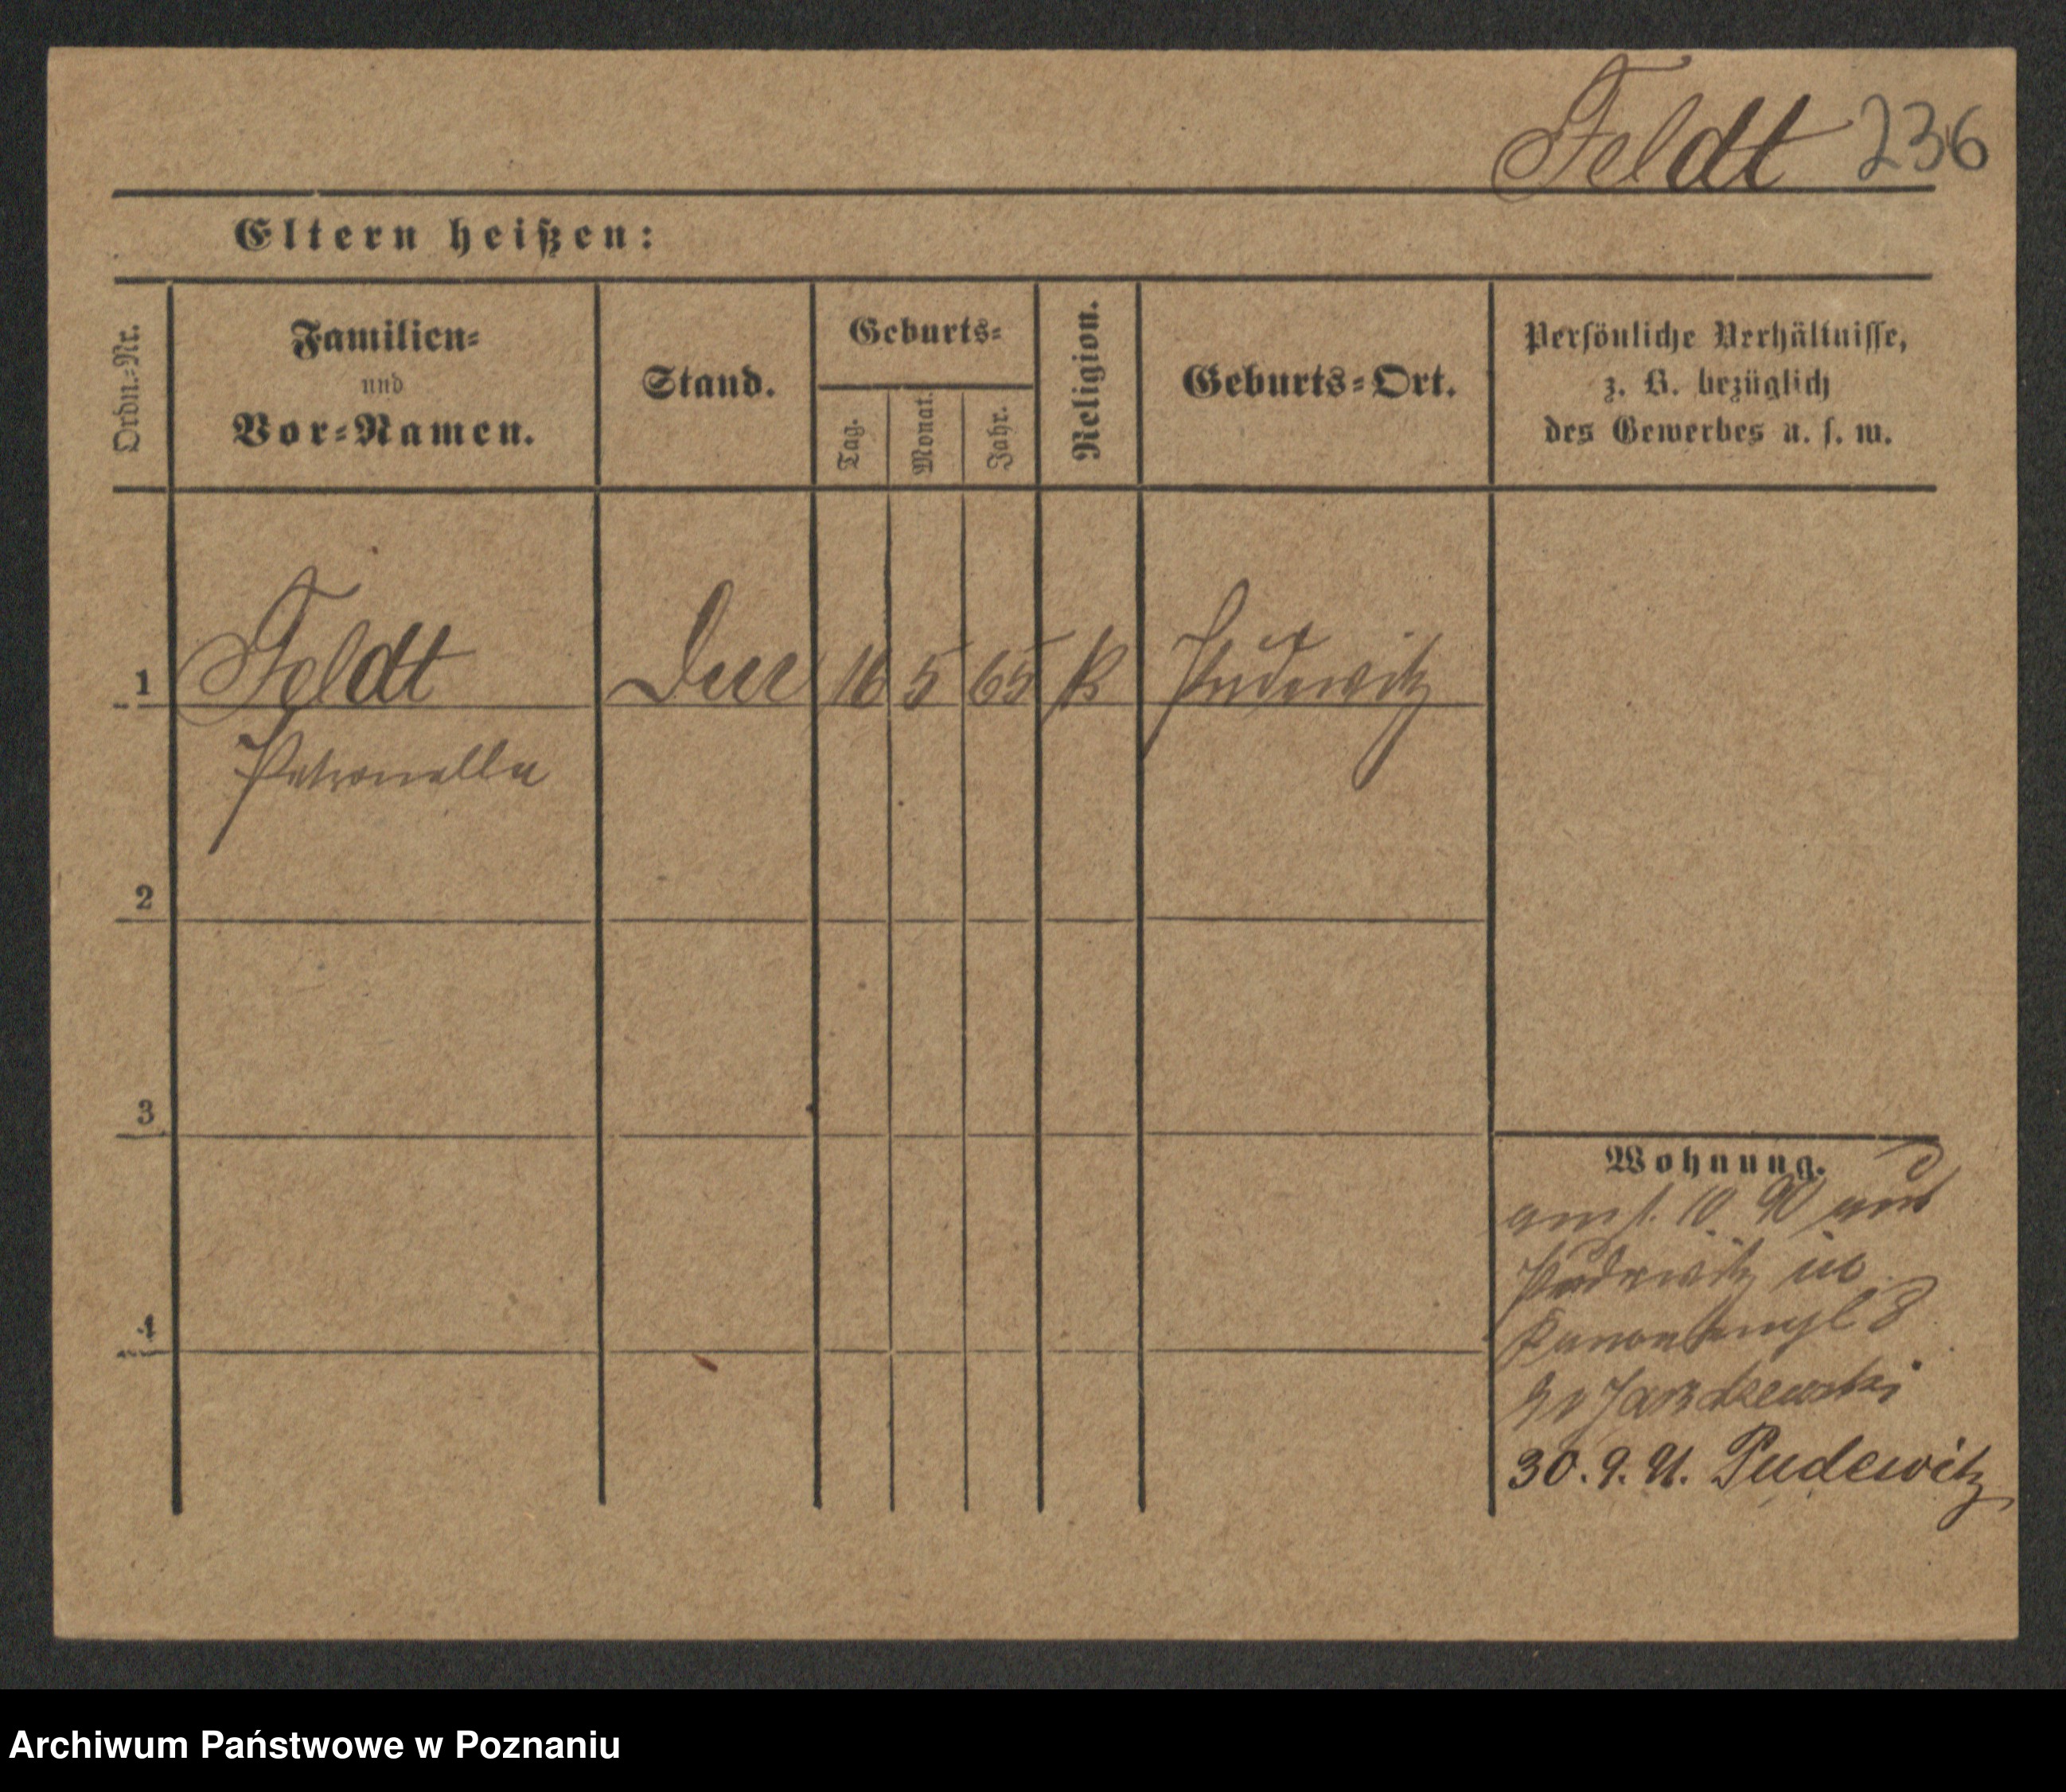 Feldt 236
Eltern heißen:
Ordn.-Nr.
Familien-
und
Vor-Namen.
Stand.
Geburts-
Tag.
Monat.
Jahr.
Religion.
Geburts-Ort.
Persönliche Verhältnisse,
z. B. bezüglich
des Gewerbes u. s. w.
1 Feldt 16 5 65 K Pudewitz
Petronella
2
3
4
Wohnung.
10 90 aus
Pudewitz in
8
30. 9. 91. Pudewitz
Archiwum Państwowe w Poznaniu